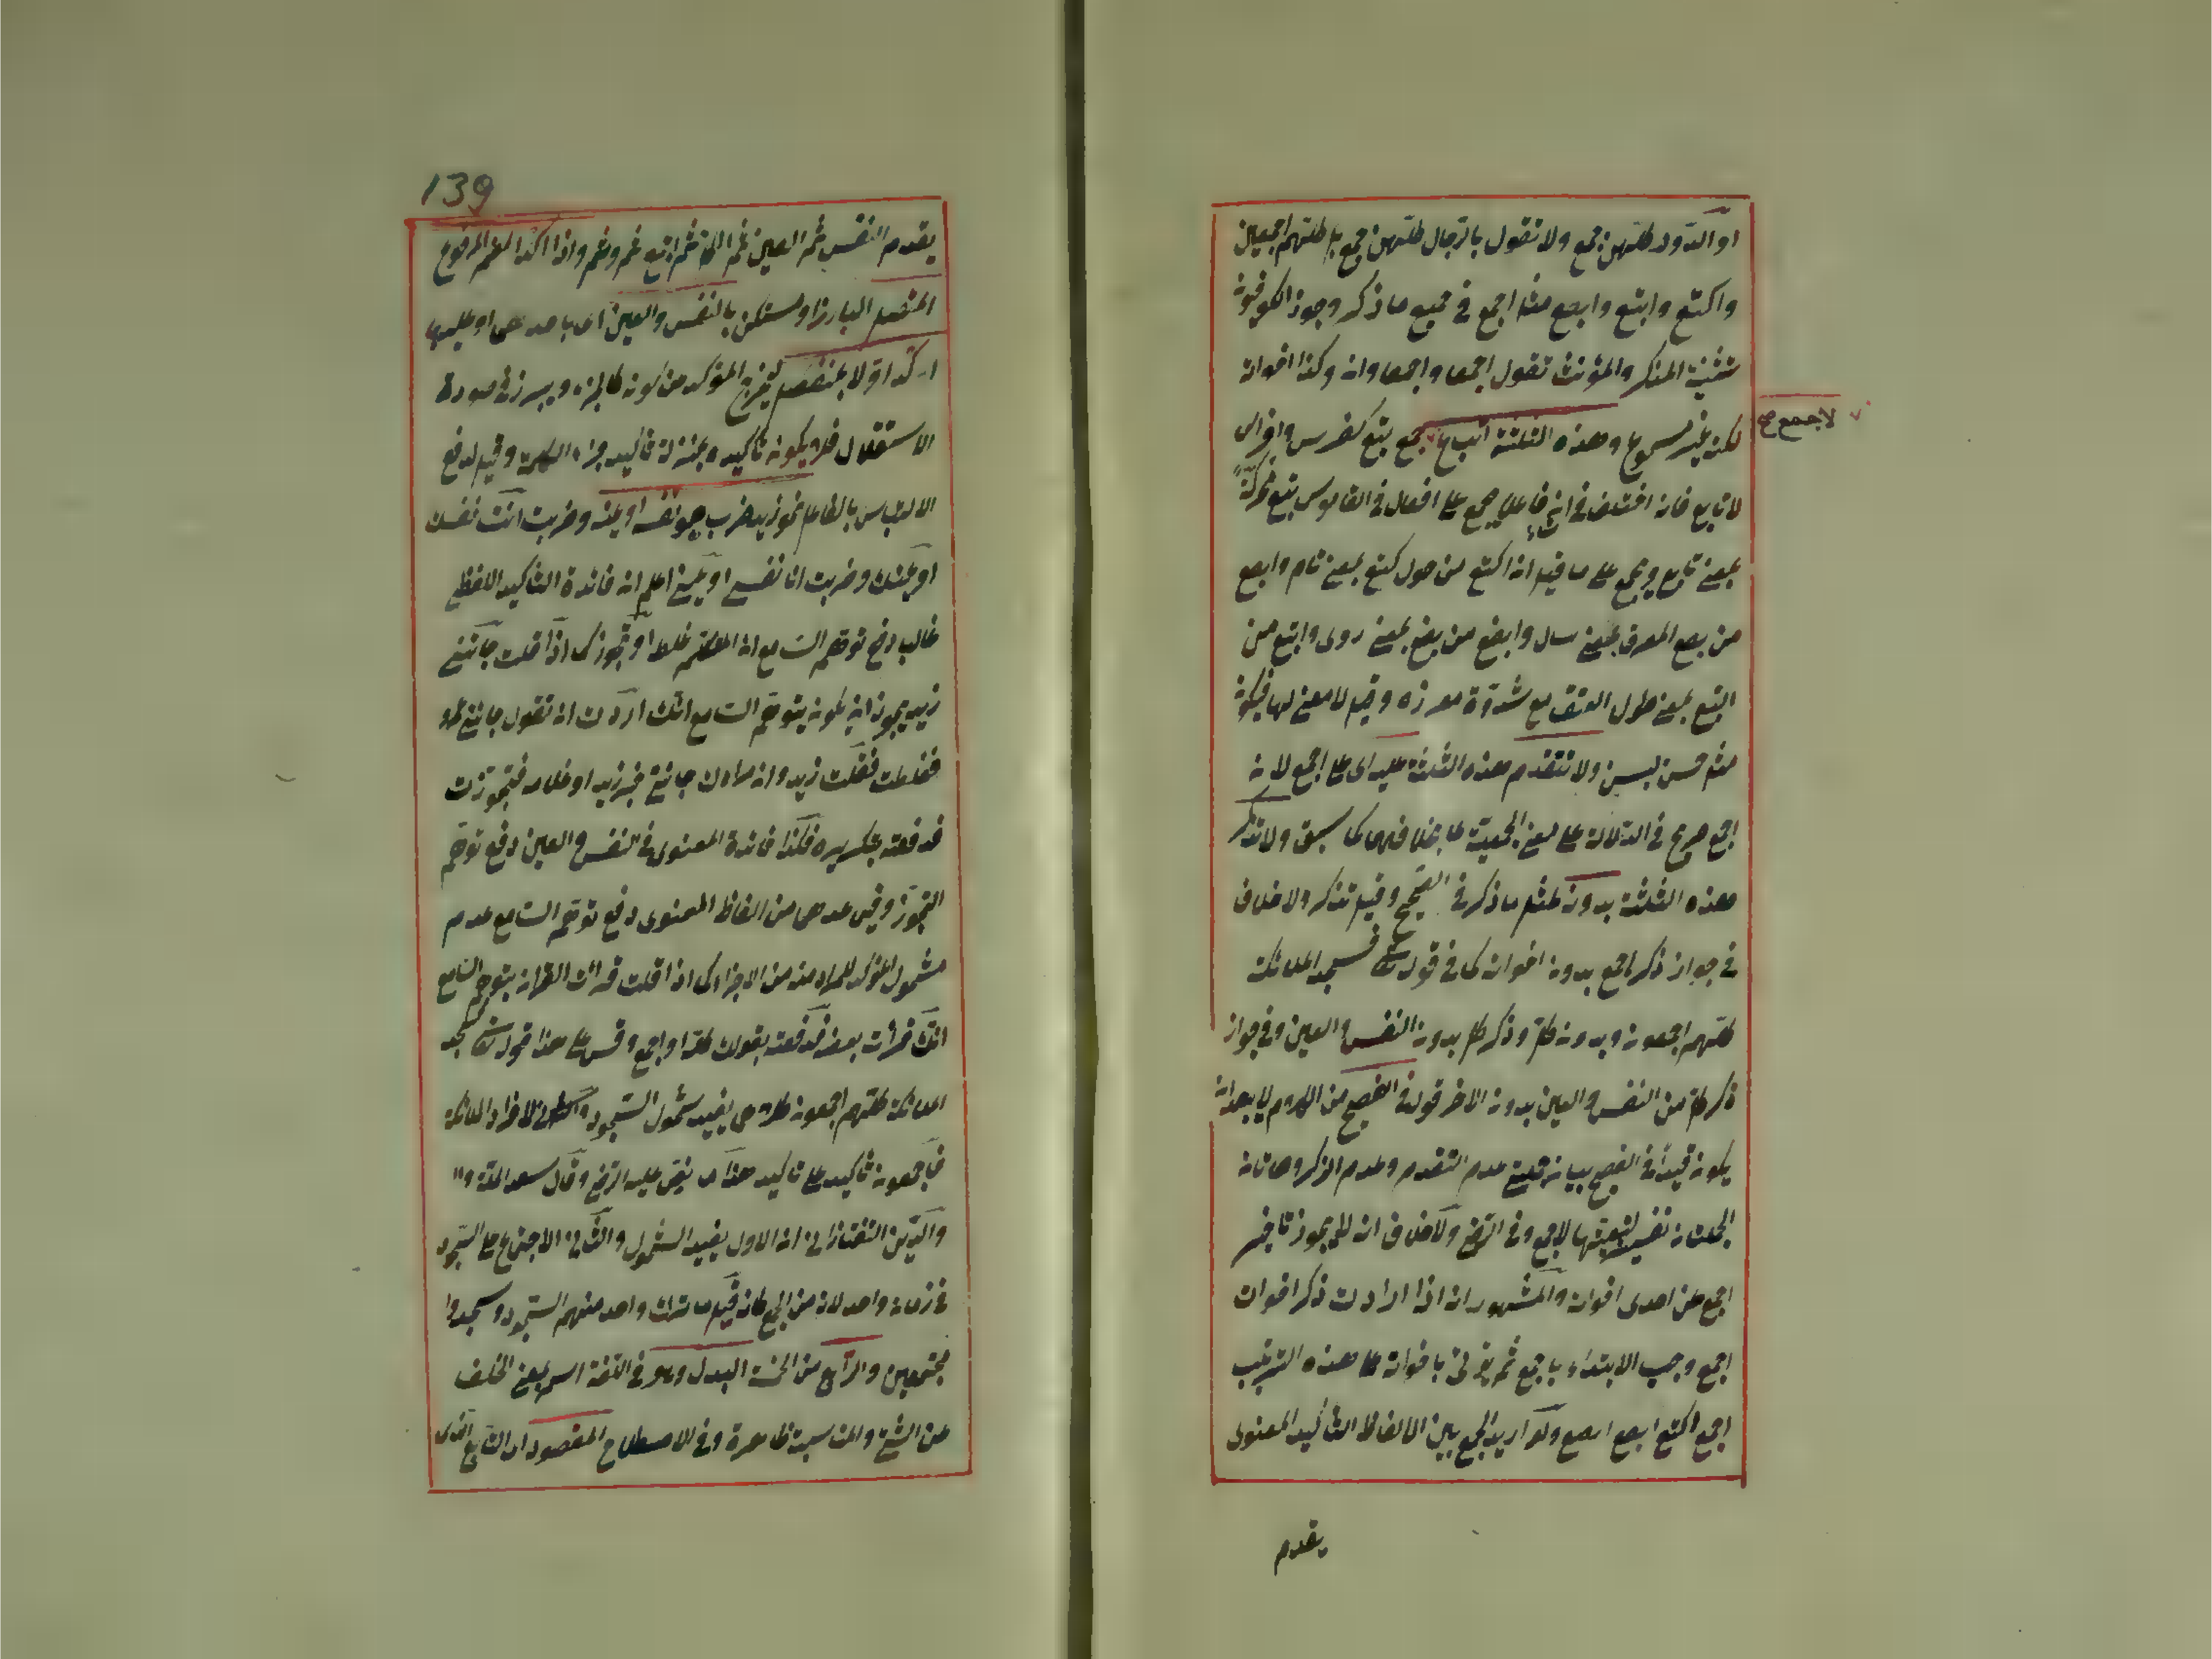 او الدور كلهن جمع ولا تقول بالرجال كلهن جمع بل كلهم اجمعين
واكتع وابتع وابصع مثل اجمع في جميع ما ذكر وجوز الكوفيون
تثنية المذكر والمؤنث تقول اجمعا واجمعاوان وكذا اخواته
لكنه غير مسموع وهذه الثلثة اتباع جمع بتع كفرس وافراس
لا تابع فانه اختلف في ان فاعلا يجمع على افعال في القاموس تبع محركة
بمعنى تابع ويجمع على ما قيل ان اكتع من حول كتع بمعنى تام وابصع
من بصع العرق بمعنى سال وابضع من بضع بمعنى روى وابتع من
البتع بمعنى طول العنق مع شدة مغرزه وقيل لا معنى لها فيكون
مثل حسن بسن ولا تتقدم هذه الثلثة عليه اى على اجمع لانه
اجمع صريح في الدلالة على معنى الجمعية بخلافها كما سبق ولا تذكر
هذه الثلثة بدونه لمثل ما ذكر في الصحيح وقيل تذكر ولا خلاف
في جواز ذكر اجمع بدون اخواته كما في قوله تعالى فسجد الملائكة
كلهم اجمعون وبدون كل وذكر كل بدون النفس والعين وفي جواز
ذكر كل من النفس والعين بدون الاخر قوله في الفصيح من الكلام لا يبعد ان
يكون قيدا في الفصيح بيانه قلت عدم التقدم وعدم الذكر وهاتان
الجملتان تفسير لتبعيتها لاجمع وفي الرضى ولا خلاف انه لا يجوز تاخير
اجمع عن احدى اخواته والمشهور انه اذا اردت ذكر اخوات
اجمع وجب الابتداء باجمع ثم يؤتى باخواته على هذه الترتيب
اجمع اكتع ابصع ابتع ولو اريد الجمع بين الالفاظ التأكيد المعنوى
يقدم
لاجمع صح
139
يقدم النفس ثم العين ثم الكل ثم اجمع ثم وثم واذا اكد الضمير المرفوع
المتصل البارز او مستكن بالنفس والعين اى باحدهما او بكليهما
اكد اولا بمنفصل ليخرج المؤكد من كونه كالجزء ويبرز في صورة
الاستقلال فلا يكون تأكيده بمنزلة تأكيد جزء الكلمة وقيل لدفع
الالتباس بالفاعل نحو زيد ضرب هو نفسه او عينه وضربت انت نفسك
او عينك وضربت انا نفسى او عينى اعلم ان فائدة التأكيد اللفظى
غالبا دفع توهم السامع ان المتكلم غلط او تجوز كما اذا قلت جائنى
زيد يجوز ان يكون يتوهم السامع انك اردت ان تقول جائنى عمرو
فغلطت فقلت زيد وان مرادك جائنى خبر زيد او غلامه فتجوزت
فدفعته بتكريره فكذا فائدة المعنوى في النفس والعين دفع توهم
التجوز وفي ما عداهما من الفاظ المعنوى دفع توهم السامع عدم
شمول المؤكد للمراد منه من الاجزاء كما اذا قلت قرأت القرآن يتوهم السامع
انك قرأت بعضه فدفعته بقولك كله او اجمع وقس على هذا قوله تعالى فسجد
الملائكة كلهم اجمعون كلاهما يفيد شمول السجود لافراد الملائكة
فاجمعون تأكيد على تأكيد هذا ما نص عليه الرضى وقال سعد الملة و
والدين التفتازانى ان الاول يفيد الشمول والثانى الاجتماع على السجود
في زمان واحد لانه من الجمع كانه قيل ما ترك واحد منهم السجود وسجدوا
مجتمعين والرابع من الخمسة البدل وهو في اللغة اسم بمعنى الخلف
عن الشئ والمناسبة ظاهرة وفي الاصطلاح المقصود اى التابع الذى